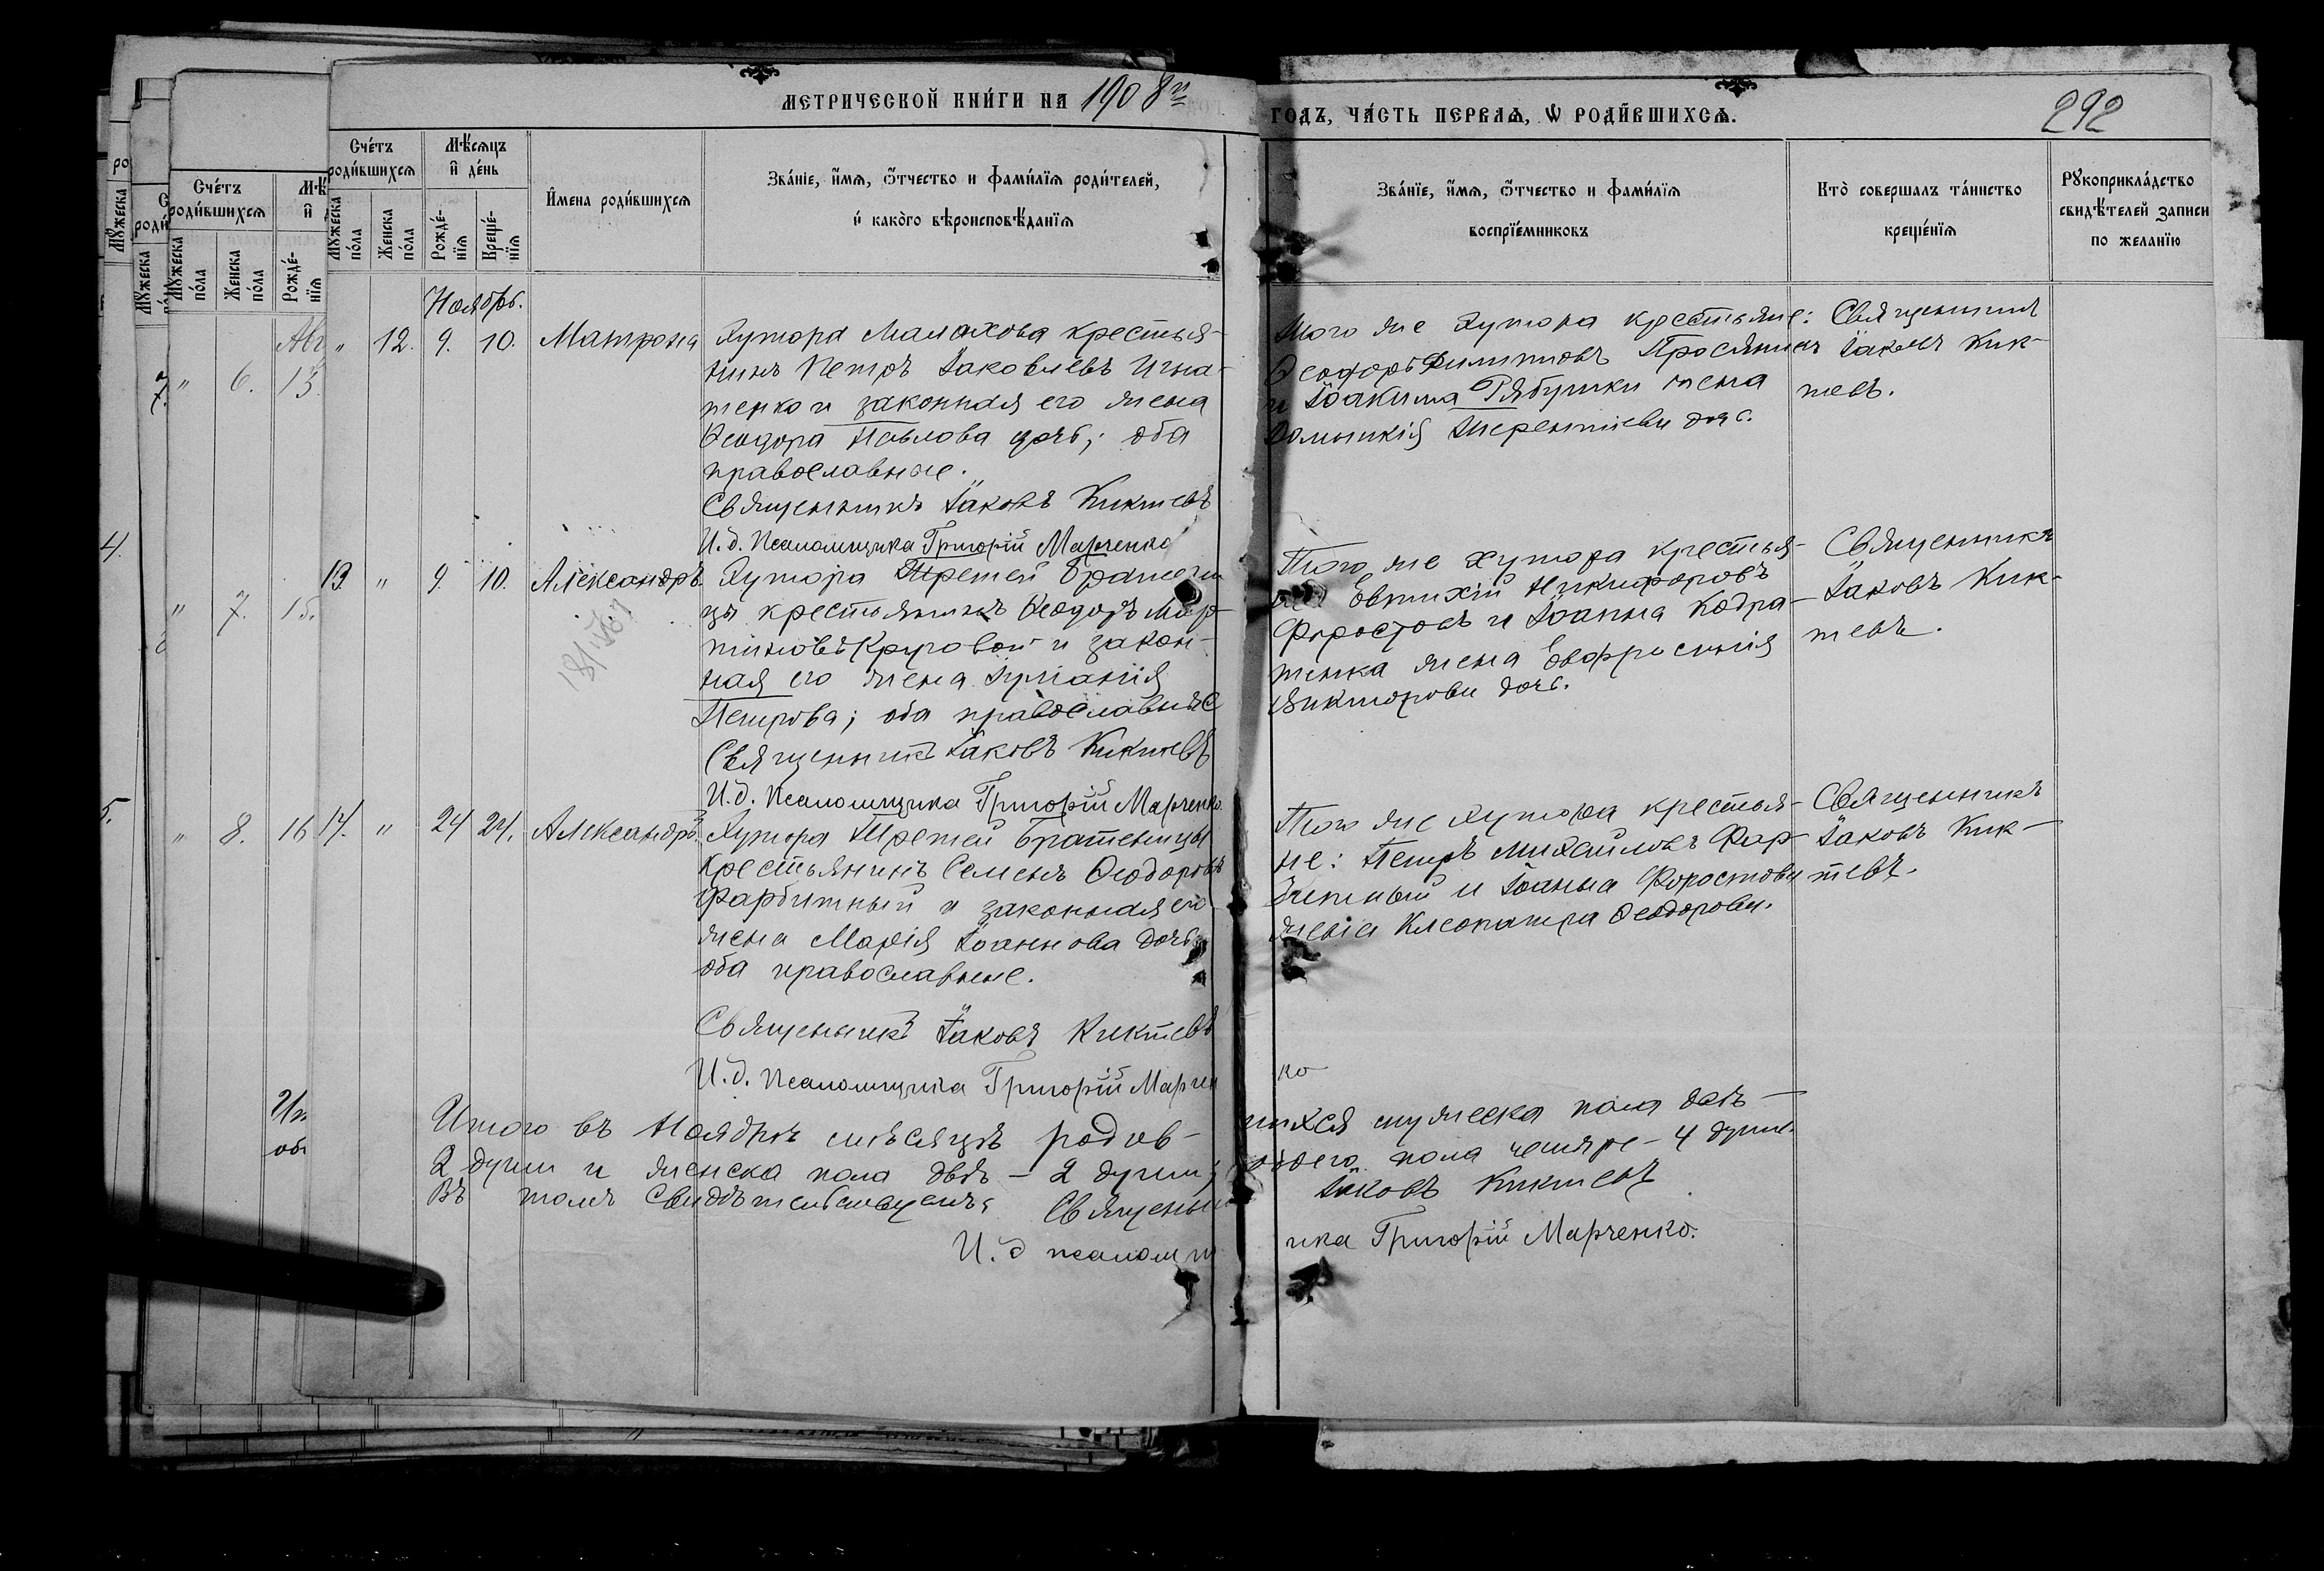 МЕТРИЧЕСКОЙ КНИ́ГИ НА 1908й
ГОДЪ, ЧА́СТЬ ПЕРВАѦ, Ѡ РОДИ́ВШИХСѦ.
292
Сче́тъ роди́вшихсѧ
Мѣ́сѧцъ и҆ де́нь
Мꙋ́жеска по́ла
Же́нска по́ла
Рожде́-нїѧ
Креще́-нїѧ
И҆мена роди́вшихсѧ
Зва́нїе, и҆́мѧ, ѻ҆́тчество и фами́лїѧ роди́телей,
и҆ како́гѡ вѣроисповѣ́данїѧ
Зва́нїе, и҆́мѧ, ѻ҆́тчество и фами́лїѧ
воспрїе́мниковъ
Кто̀ совершалъ та́инство
креще́нїѧ
Рꙋкоприкла́дство
свидѣ́телей записи
по жела́нїю
Ноябрь.
" 12. 9. 10. Матрона
Хутора Малахова крестья-
нинъ Петръ Іаковлевъ Игна-
тенко и законная его жена
Ѳеодора Павлова дочь; оба
православные.
Священникъ Іаковъ Киктевъ
И.д. Псаломщика Григорій Марченко
Того же Хутора крестьяне:
Ѳеодоръ Филипповъ
и Іоакима Рябушки жена
Терентіева дочь.
Священникъ
Іаковъ Кик-
тевъ.
13. " 9. 10. Александръ.
Хутора Третей Братени
цы крестьянинъ Ѳеодоръ Мар-
тиновъ Круговой и закон-
ная его жена Іуліанія
Петрова; оба православные
Священникъ Іаковъ Киктевъ
И.д. Псаломщика Григорій Марченко.
Того же хутора крестья-
Евтихій Никифоровъ
Форостовъ и Іоанна Кодра-
тенка жена Евфросинія
Викторова дочь.
Священникъ
Іаковъ Кик-
тевъ.
14. " 24 24. Александръ.
Хутора Третей Братеницы
крестьянинъ Семенъ Ѳеодоровъ
Фарбитный и законная его
жена Марія Іоаннова дочь
оба православные.
Священникъ Іаковъ Киктевъ
И.д. Псаломщика Григорій Марчен
ко
Того же Хутора крестья-
не: Петръ Михайловъ Фар-
битный и Іоанна Форостовы
жена Клеопатра Ѳеодорова.
Священникъ
Іаковъ Кик-
тевъ.
Итого въ Ноябрѣ мѣсяцѣ родив-
шихся мужеска пола двѣ —
2 души и женска пола двѣ — 2 души;
обоего пола четыре — 4 души.
Въ томъ свидѣтельствуемъ: Священни
Іаковъ Киктевъ
И.д псаломщ
ика Григорій Марченко.
Сче́тъ
роди́вшихсѧ
Мꙋ́жеска по́ла
Же́нска по́ла
Рожде́-нїѧ
Авг
" 6. 13.
" 7. 15.
" 8. 16
4.
5.
7.